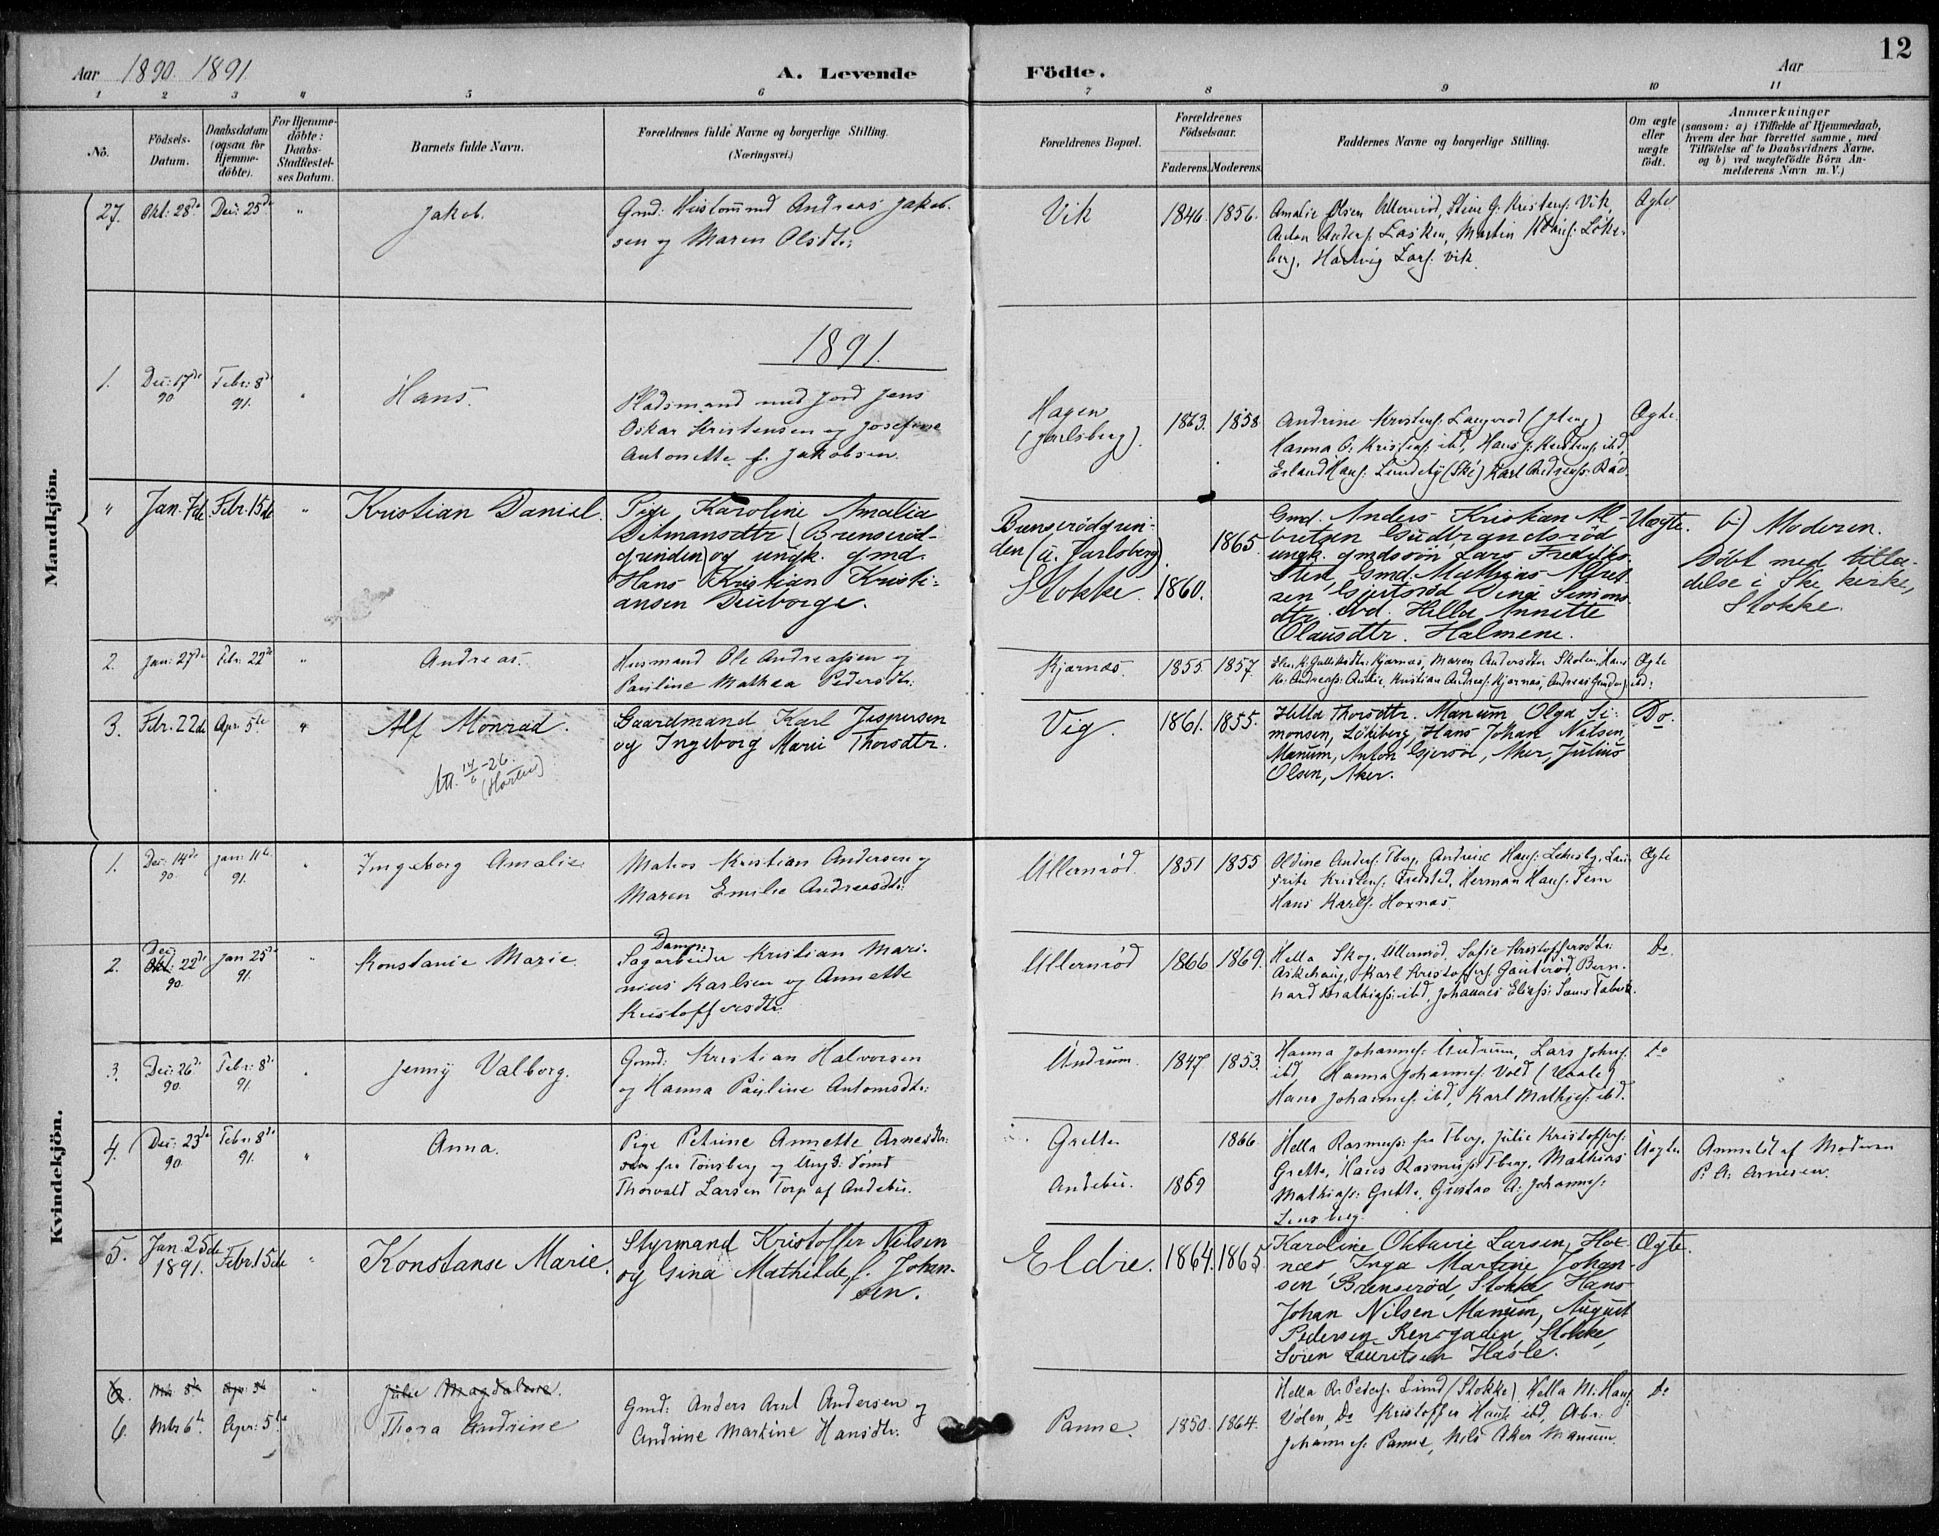 Aar 1890. 1891
A. Levende Födte.
Aar
12
1 2 3 4 5 6 7 8 9 10 11
No.
Födsels-Datum.
Daabsdatum (ogsaa for Hjemme-döbte).
For Hjemme-döbte: Daabs-Stadfæstel-ses Datum.
Barnets fulde Navn.
Forældrenes fulde Navne og borgerlige Stilling.
(Næringsvei.)
Forældrenes Bopæl.
Forældrenes Födselsaar.
Faderens. Moderens.
Faddernes Navne og borgerlige Stilling.
Om ægte eller uægte födt.
Anmærkninger
(saasom: a) i Tilfælde af Hjemmedaab,
hvem der har forrettet samme, med
Tilföielse af to Daabsvidners Navne.
og b) ved uægtefödte Börn An-
melderens Navn m. V.)
Mandkjön.
27. Okt: 28de Dec: 25de " Jakob.
Gmd: Andreas Jakob-
sen og Maren Olsdtr:
Vik 1846. 1856.
Amalie Olsen Ullernrød, Stine G. Kristens. Vik,
Anton Anders. Lasken, Martin Løke-
berg, Hartvig Lars. Vik.
Ægte
1891.
1. Dec: 17de 90 Febr: 8de 91. " Hans.
Pladsmand med jord Jens
Oskar Kristensen og Josefine
Antonette f. Jakobsen.
Hagen
(Jarlsberg).
1863. 1858
Andrine Kristens. Langerød
Hanna O. Kristens. ibd, Hans J. Kristens. ibd,
Erland Hans. Lundeby (Ske) Karl Andreas.
Ægte.
" Jan. 7de Febr. 15de " Kristian Daniel.
Pige Karoline Amalia
Ditmansdtr (Brenserød-
grinden) og ungk. gmd.
Hans Kristian Kristi-
ansen Dueborge.
Brenserødgrin-
den (u. Jarlsberg).
Stokke.
1860. 1865
Gmd. Anders Kristian Al-
bretsen Gudbrandsrød
ungk. gmdssøn Lars Fredriks-
Gmd. Mathias Alfret-
sen Gjertsrød Simons-
dtr. ibd. Hella Annette
Olausdtr. Halmene.
Uægte.
b) Moderen.
Døbt med tilla-
delse i Ske kirke,
Stokke.
2. Jan: 27de Febr: 22de " Andreas.
Husmand Ole Andreassen og
Pauline Mathea Pedersdtr.
Kjærnæs. 1855. 1857.
Gulliksdtr: Kjærnæs, Maren Andersdtr Skolen, Hans
Kristian Andreas. Kjærnæs, Andreas ibd:
Ægte
3. Febr. 22de Apr. 5te " Alf Monrad.
Att. 14/6-26.
(Horten)
Gaardmand Karl Jespersen
og Ingeborg Marie Thorsdtr.
Vig. 1861. 1855.
Hella Thorsdtr. Manum Olga Si-
monsen, Løkeberg, Hans Johan Nilsen,
Manum, Anton Gjersøe, Aker, Julius
Olsen, Aker.
Do.
Kvindekjön.
1. Dec: 14de 90. Jan: 11te 91. " Ingeborg Amalie.
Matros Kristian Andersen og
Maren Emilie Andreasdtr:
Ullernrød. 1851 1855
Oldine Anders. Tberg, Andrine Hans. Lars
Fritz Kristens. Fredsted, Herman Hans. Fem
Hans Karls. Hoxnæs.
Ægte
2. Dec 22de 90. Jan 25de 91. " Konstanse Marie
Damp-
Sagarbeider Kristian Mari-
nius Karlsen og Annette
Kristoffersdtr.
Ullernrød 1866 1869.
Hella Skog, Ullernrød, Sofie Kristoffersdtr:
Askehaug, Karl Kristoffers. Gauterød, Bern-
hard Mathias. ibd, Johannes Elias:
Do.
3. Dec: 26de 90. Febr: 8de 91. " Jenny Valborg.
Gmd: Kristian Halvorsen
og Hanna Pauline Antonsdtr:
Undrum. 1847 1853.
Hanna Johannes. Undrum, Lars Johns.
ibd, Hanna Johannes. Vold (Vaale)
Hans Johannes. ibd, Karl Mathias. ibd.
Do
4. Dec: 23de 90. Febr: 8de 91. " Anna.
Pige Petrine Annette Arnesdtr:
fra Tønsberg og Ungk: Sømd
Thorvald Larsen Torp af Andebu.
Grette
Andebu.
1869 1866
Hella Rasmuss: fra Tberg, Julie Kristoffers:
Grette, Hans Rasmuss. Tberg, Mathias
Mathiass: Grette, Gustav A. Johannes.
Uægte
Anmeldt af Moderen
P. A. Arnesen.
5. Jan. 25de 1891. Febr. 15de " Konstanse Marie.
Styrmand Kristoffer Nilsen
og Gina Mathilde, f. Johan-
sen.
Eldre. 1864. 1865
Karoline Oktavie Larsen, Hox-
næs, Inga Martine Johan-
sen Brenserød, Stokke, Hans
Johan Nilsen Manum, August
Pedersen Stokke,
Søren Lauritsen Hasle.
Ægte.
6. Apr 5te " Julie Magdalene.
6. Mrs 6te. Apr: 5te " Thora Andrine
Gmd: Anders Arnt Andersen og
Andrine Martine Hansdtr:
Panne. 1850. 1864.
Hella R. Peders. Lund (Stokke) Hella M. Hans.
Volen, Do Kristoffer Hans. ibd, Abr.
Johannes. Panne, Nils Aker Manum.
Do